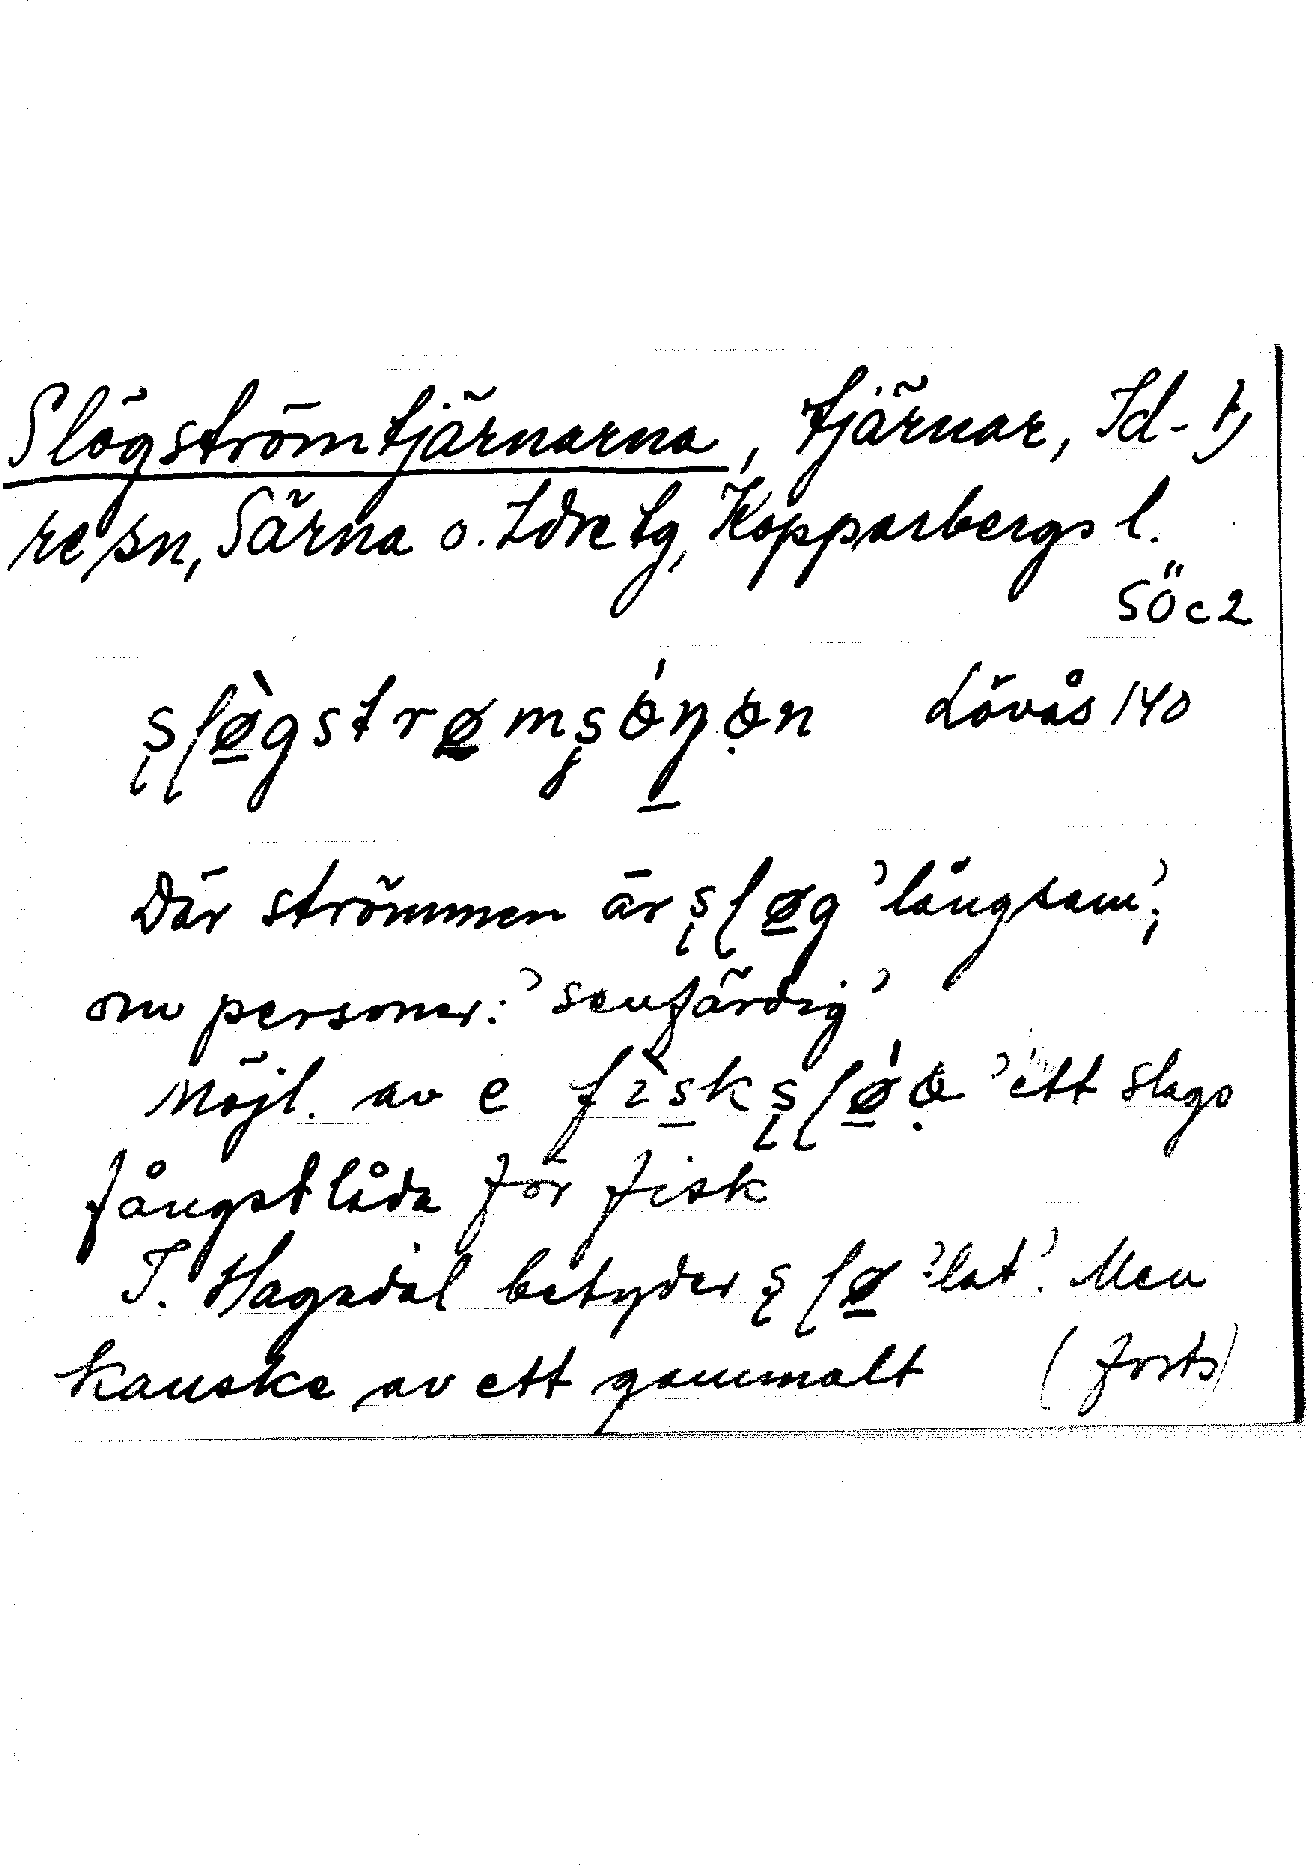 Slögströmtjärnarna, tjärnar, Id-
re sn, Särna o. Idre tg, Kopparbergs l.
SÖ c 2
Lövås 140
Där strömmen är 'långsam';
om personer: 'senfärdig'
Möjl. av e 'ett slags
fångstlåda för fisk
I. Hagndal betyder 'lat'. Men
kanske av ett gammalt (forts)